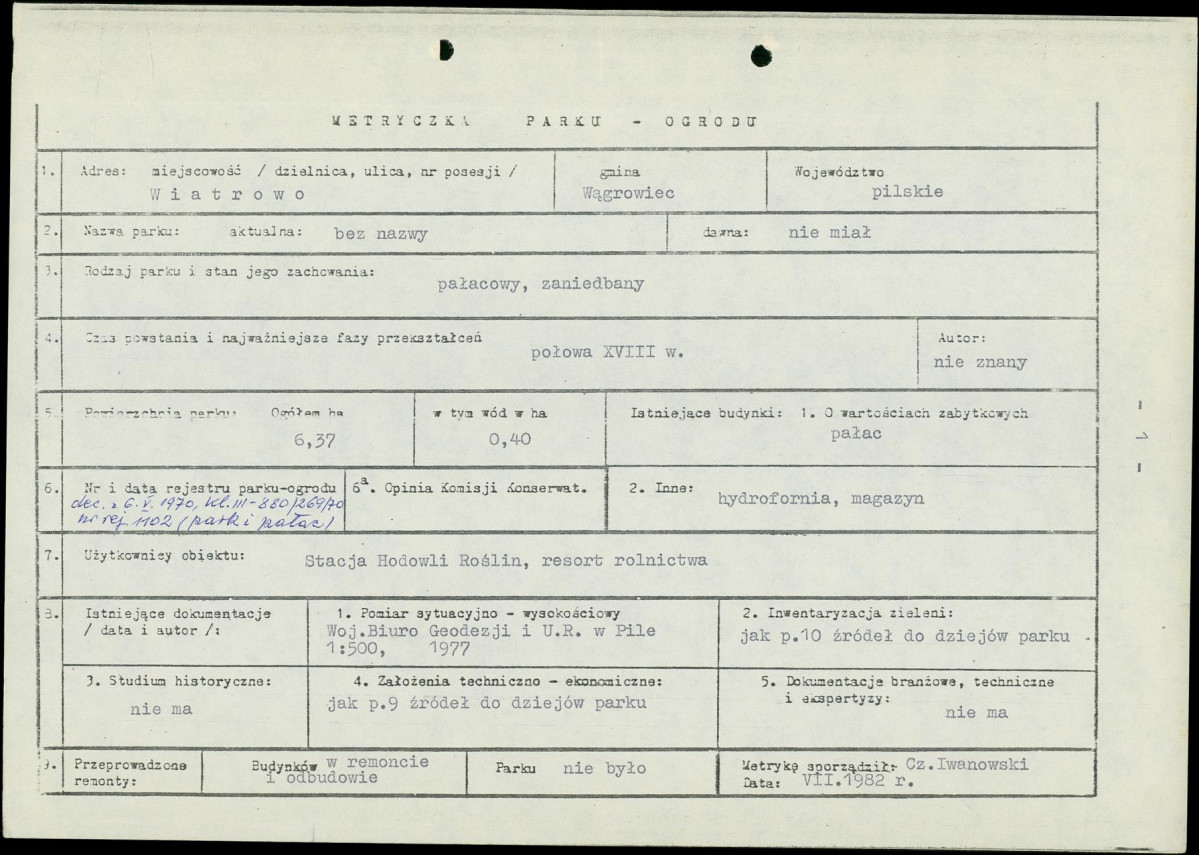 METRYCZKA PARKU - OGRODU
1. Adres: miejscowość / dzielnica, ulica, nr posesji /
Wiatrowo
gmina
Wągrowiec
Województwo
pilskie
2. Nazwa parku: aktualna: bez nazwy
dawna: nie miał
3. Rodzaj parku i stan jego zachowania:
pałacowy, zaniedbany
4. Czas powstania i najważniejsze fazy przekształceń
połowa XVIII w.
Autor:
nie znany
5. Powierzchnia parku: Ogółem ha
6,37
w tym wód w ha
0,40
Istniejące budynki: 1. O wartościach zabytkowych
pałac
6. Nr i data rejestru parku-ogrodu
dec. z 6.V.1970, kl.III-880/269/70
nr rej. 1102 (park i pałac)
6a. Opinia Komisji Konserwat.
2. Inne:
hydrofornia, magazyn
7. Użytkownicy obiektu:
Stacja Hodowli Roślin, resort rolnictwa
8. Istniejące dokumentacje
/ data i autor /:
1. Pomiar sytuacyjno - wysokościowy
Woj.Biuro Geodezji i U.R. w Pile
1:500, 1977
2. Inwentaryzacja zieleni:
jak p.10 źródeł do dziejów parku
3. Studium historyczne:
nie ma
4. Założenia techniczno - ekonomiczne:
jak p.9 źródeł do dziejów parku
5. Dokumentacje branżowe, techniczne
i ekspertyzy:
nie ma
9. Przeprowadzone
remonty:
Budynków w remoncie
i odbudowie
Parku nie było
Metrykę sporządził: Cz.Iwanowski
Data: VII.1982 r.
- 1 -